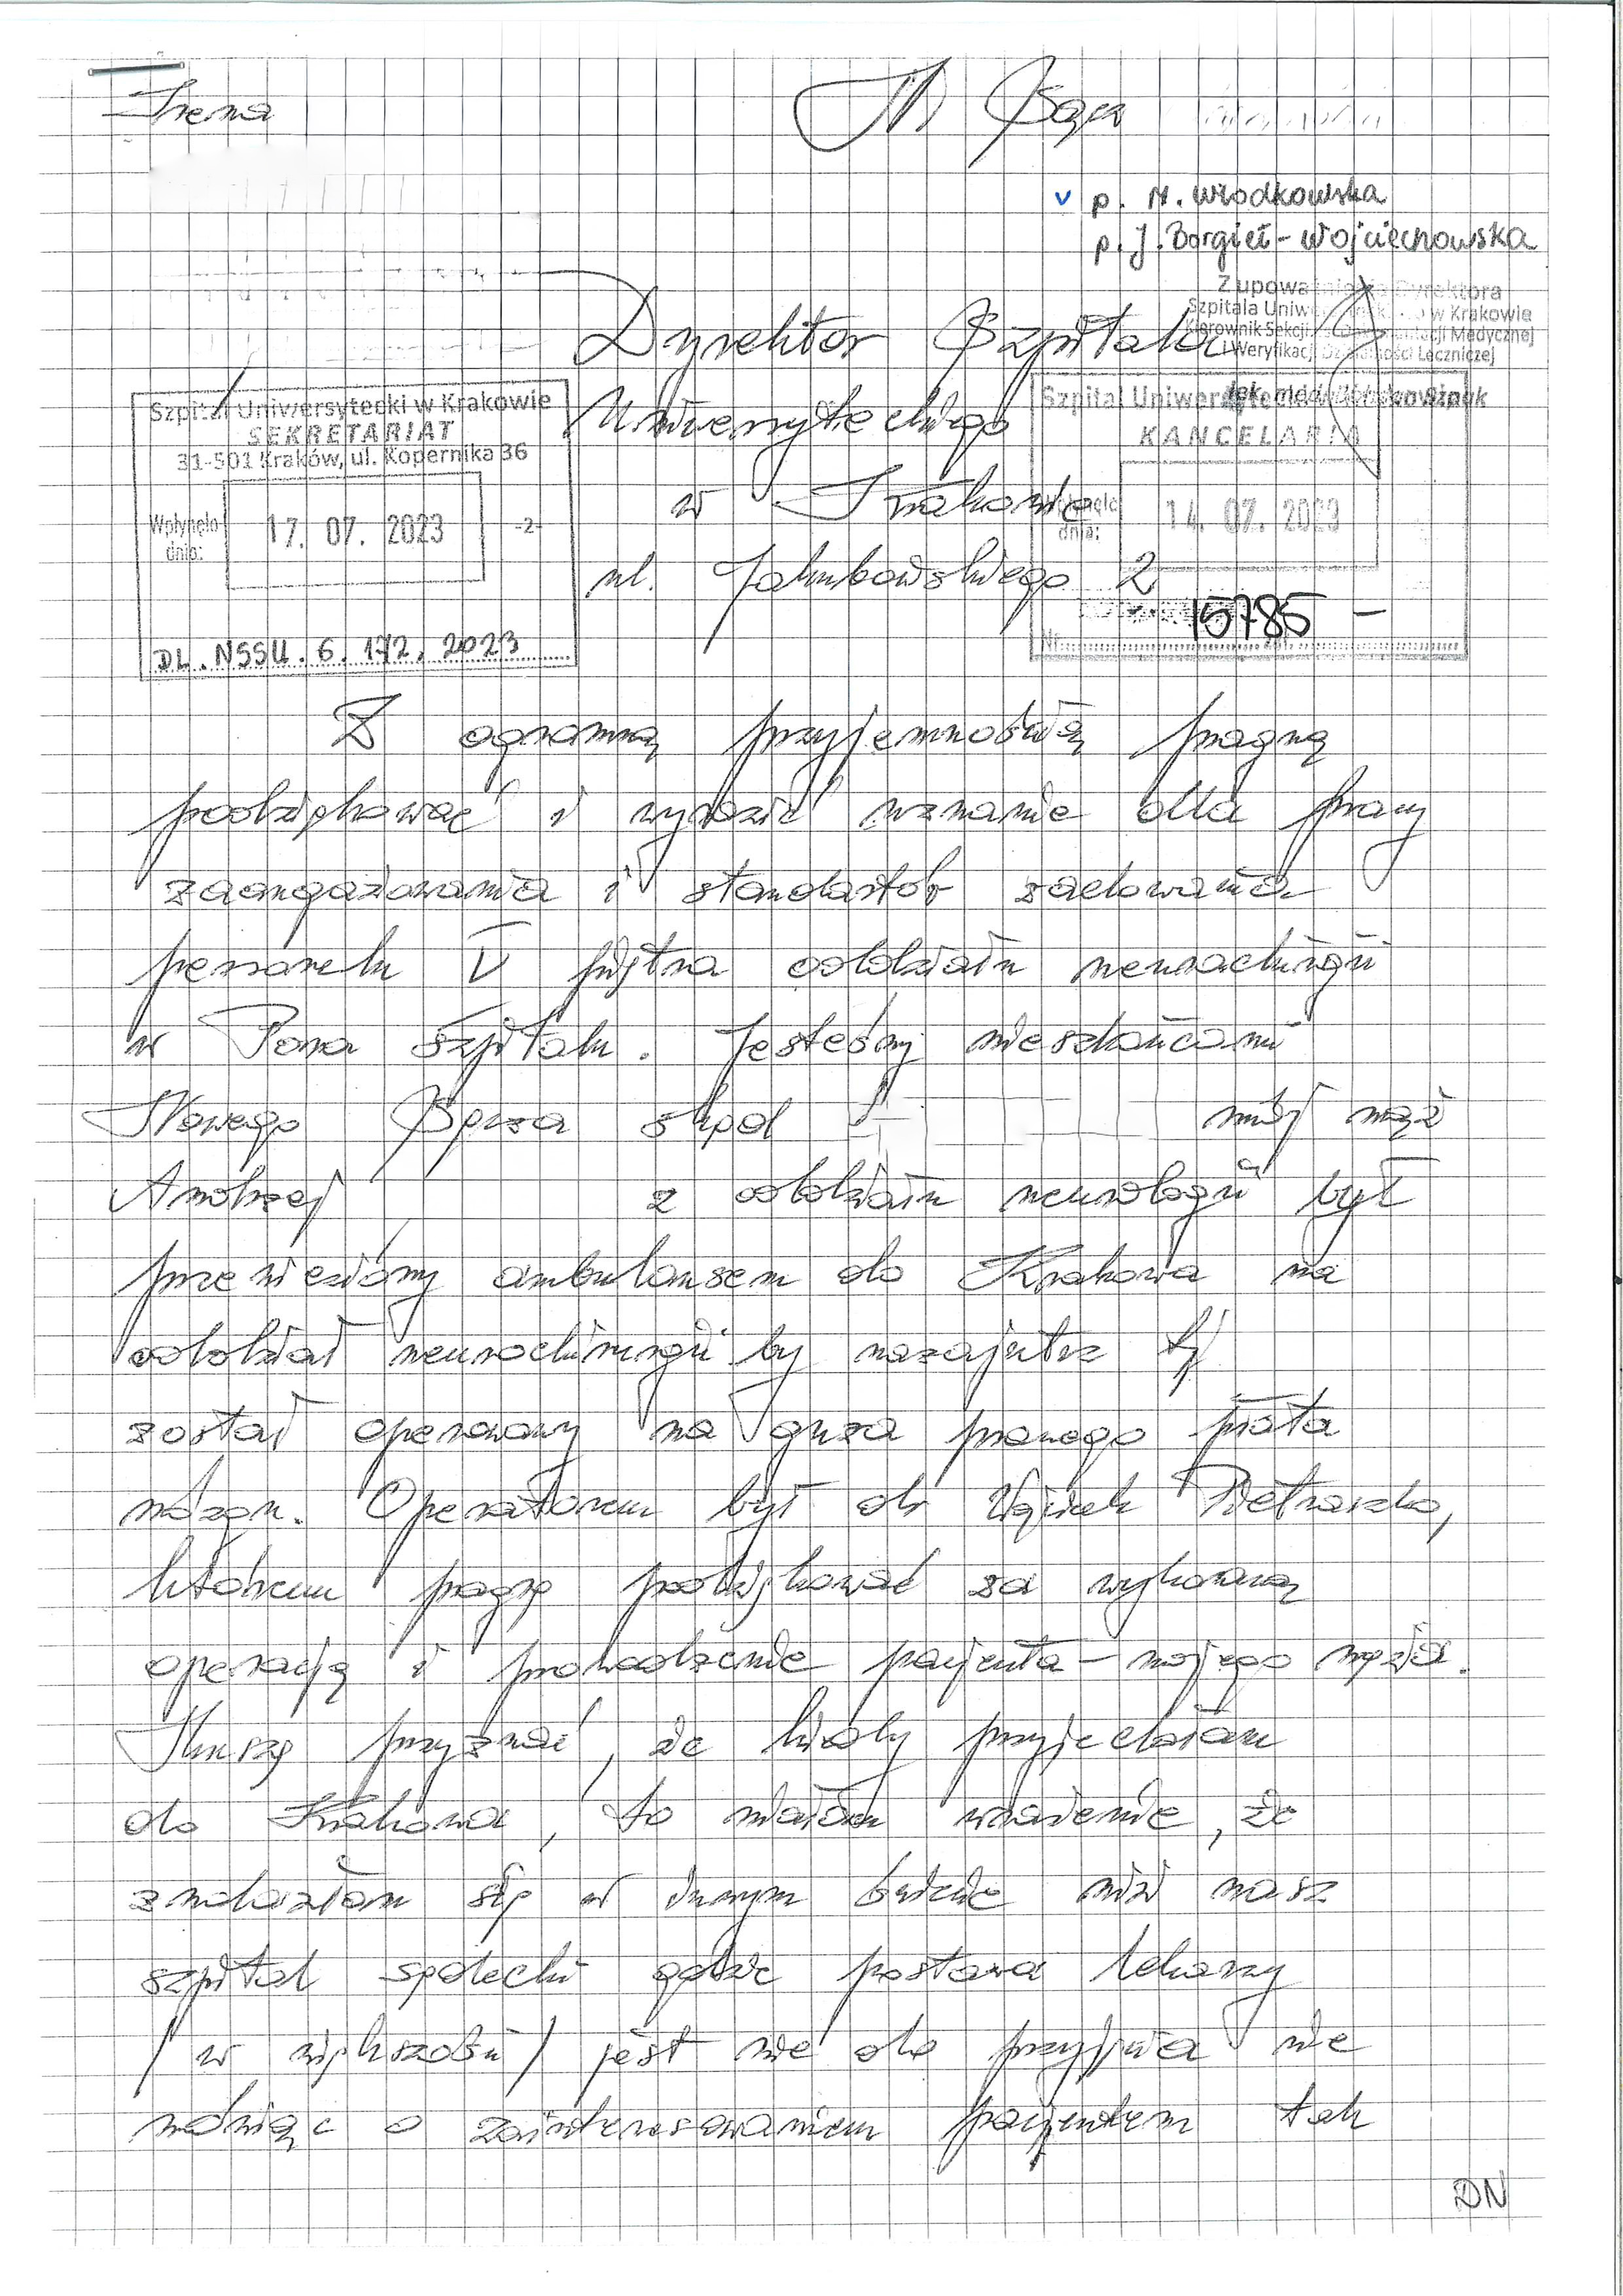 Irena
N. Sącz
v p. M. Włodkowska
p. J. Bargieł-Wojciechowska
Z upoważnienia Dyrektora
Szpitala Uniwersyteckiego w Krakowie
Kierownik Sekcji Dokumentacji Medycznej
i Weryfikacji Działalności Leczniczej
lek. med.
Dyrektor Szpitala
Uniwersyteckiego
w Krakowie
ul. Jakubowskiego 2
Szpital Uniwersytecki w Krakowie
SEKRETARIAT
31-501 Kraków, ul. Kopernika 36
Wpłynęło dnia: 17. 07. 2023 -2-
DL.NSSU.6.172.2023
Szpital Uniwersytecki
KANCELARIA
Wpłynęło dnia: 14. 07. 2023
Nr 15785 -
Z ogromną przyjemnością pragnę
podziękować i wyrazić uznanie dla pracy
zaangażowania i standartów zachowania
personelu V piętra oddziału neurochirugii
w Pana szpitalu. Jesteśmy mieszkańcami
Nowego Sącza skąd mój mąż
Andrzej z oddziału neurologii był
przewieziony ambulansem do Krakowa na
oddział neurochirurgii by nazajutrz tj
został operowany na guza prawego płata
mózgu. Operatorem był dr Wojciech Pietraszko,
któremu pragnę podziękować za wykonaną
operację i prowadzenie pacjenta - mojego męża.
Muszę przyznać, że kiedy przyjechałam
do Krakowa, to miałam wrażenie, że
znalazłam się w innym świecie niż nasz
szpital sądecki gdzie postawa lekarzy
/ w większości / jest nie do przyjęcia nie
mówiąc o zainteresowaniem pacjentem tak
DN